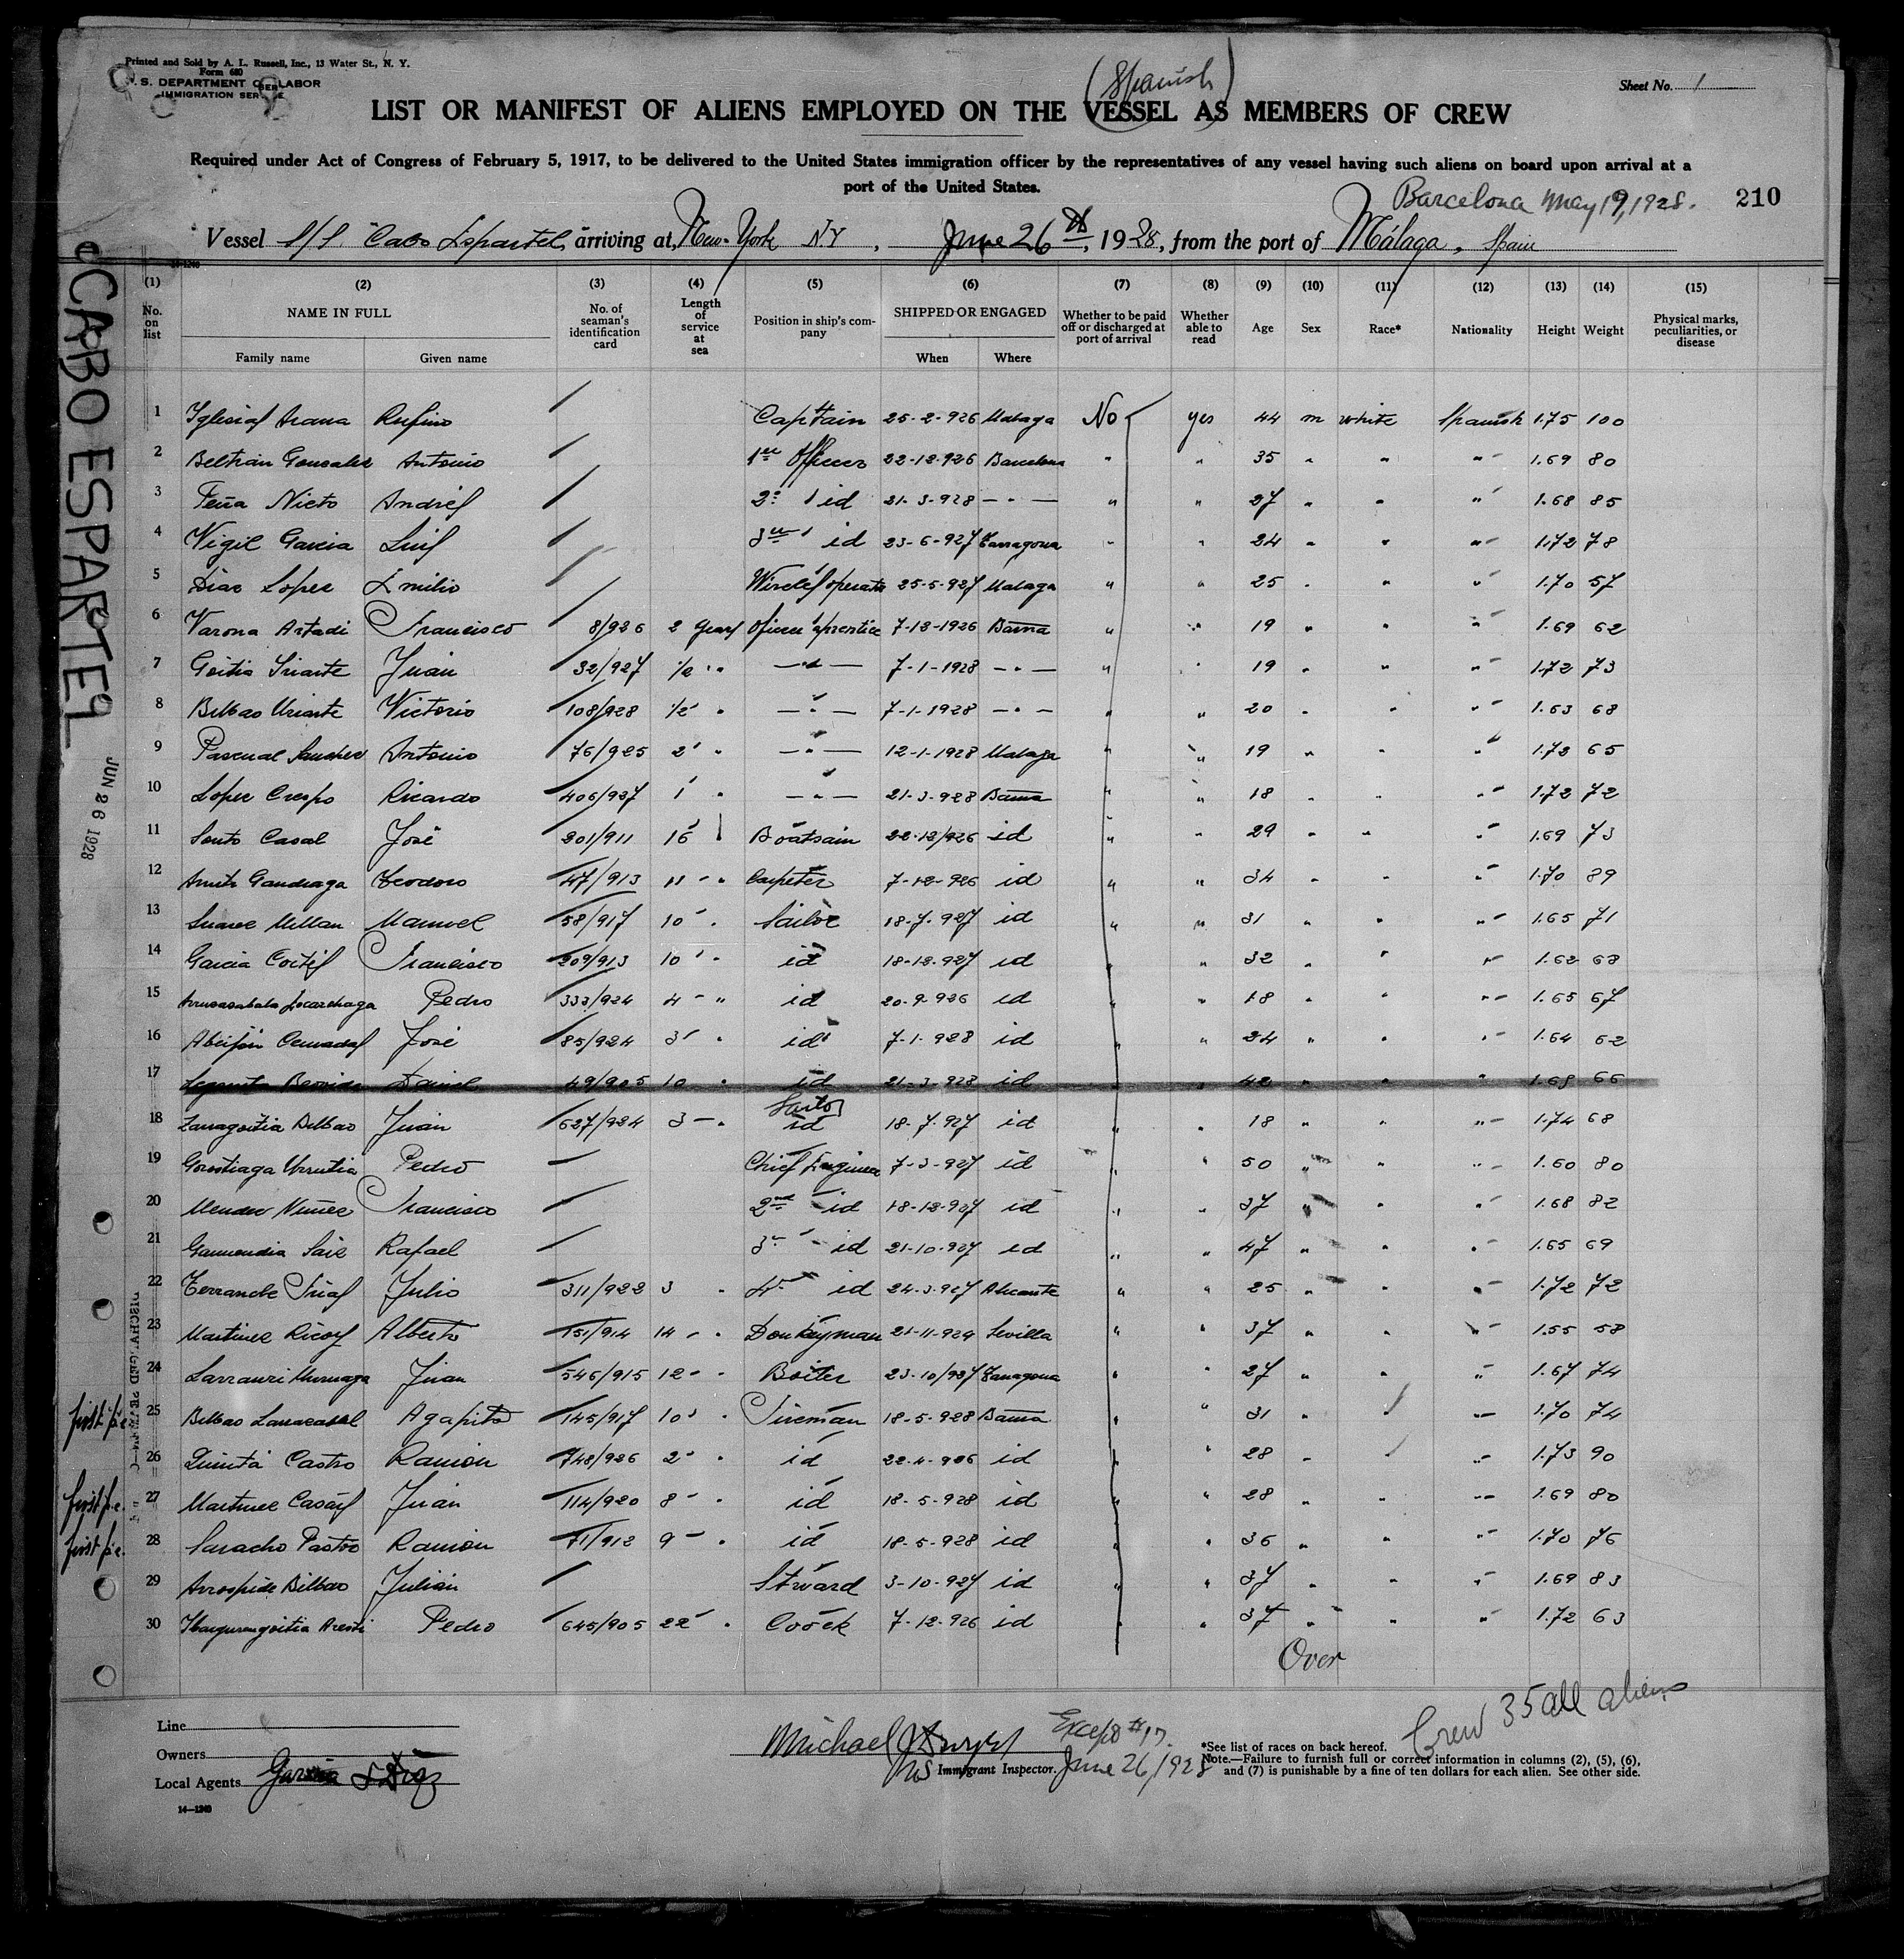 Printed and Sold by A. L. Russell, Inc., 13 Water St., N. Y.
Form 680
U. S. DEPARTMENT OF LABOR
IMMIGRATION SERVICE
(Spanish)
Sheet No. 1
LIST OR MANIFEST OF ALIENS EMPLOYED ON THE VESSEL AS MEMBERS OF CREW
Required under Act of Congress of February 5, 1917, to be delivered to the United States immigration officer by the representatives of any vessel having such aliens on board upon arrival at a
port of the United States.
Barcelona May 19, 1928. 210
Vessel S/S. "Cabo Espartel, arriving at, New-York NY, June 26th, 1928, from the port of Málaga, Spain
14-1240
CABO ESPARTEL
JUN 26 1928
(1) (2) (3) (4) (5) (6) (7) (8) (9) (10) (11) (12) (13) (14) (15)
No. on list NAME IN FULL No. of seaman's identification card Length of service at sea Position in ship's company SHIPPED OR ENGAGED Whether to be paid off or discharged at port of arrival Whether able to read Age Sex Race* Nationality Height Weight Physical marks, peculiarities, or disease
Family name Given name When Where
1 Iglesias Arana Rufino Captain 25-2-926 Malaga No yes 44 m white Spanish 1.75 100
2 Beltran Gonzalez Antonio 1er Officer 22-12-926 Barcelona " " 35 " " " 1.69 80
3 Peña Nieto Andrés 2º id 21-3-928 — " — " " 27 " " " 1.68 85
4 Vigil Garcia Luis 3er id 23-6-927 Tarragona " " 24 " " " 1.72 78
5 Diaz Lopez Emilio Wireles operator 25-5-927 Malaga " " 25 " " " 1.70 57
6 Varona Artadi Francisco 8/926 2 years Oficer aprentice 7-12-1926 Barna " " 19 " " " 1.69 62
7 Goitia Iriarte Juan 32/927 1/2 " — " — 7-1-1928 — " — " " 19 " " " 1.72 73
8 Bilbao Uriarte Victorio 108/928 1/2 " — " — 7-1-1928 — " — " " 20 " " " 1.63 68
9 Pascual Sanchez Antonio 76/925 2 " — " — 12-1-1928 Malaga " " 19 " " " 1.73 65
10 Lopez Crespo Ricardo 406/927 1 " — " — 21-3-928 Barna " " 18 " " " 1.72 72
11 Souto Casal José 201/911 16 " Boatsain 22-12/926 id " " 29 " " " 1.69 73
12 Gandiaga Teodoro 47/913 11 " Carpeter 7-12-926 id " " 34 " " " 1.70 89
13 Suarez Millan Manuel 58/917 10 " Sailor 18-7-927 id " " 31 " " " 1.65 71
14 Garcia Cortés Francisco 209/913 10 " id 18-12-927 id " " 32 " " " 1.62 68
15 Pedro 333/924 4 " id 20-9-926 id " " 18 " " " 1.65 67
16 Abeijón José 85/924 3 " id 7-1-928 id " " 24 " " " 1.64 62
17 Daniel 49/905 10 " id 21-3-928 id " 42 " " " 1.68 66
18 Zarragoitia Bilbao Juan 627/924 3 " Sailor id 18-7-927 id " " 18 " " " 1.74 68
19 Gorostiaga Urrutia Pedro Chief Engineer 7-3-927 id " " 50 " " " 1.60 80
20 Mendez Nuñez Francisco 2nd id 18-12-927 id " " 37 " " " 1.68 82
21 Garmendia Saiz Rafael 3r id 21-10-927 id " " 47 " " " 1.65 69
22 Julio 311/922 3 " 4º id 24-3-927 Alicante " " 25 " " " 1.72 72
23 Martinez Ricoy Alberto 151/914 14 " Donkeyman 21-11-924 Sevilla " " 37 " " " 1.55 58
24 Larrauri Muruaga Juan 546/915 12 " Boiler 23-10/927 Tarragona " " 27 " " " 1.67 74
first p.e. 25 Bilbao Agapito 145/917 10 " Fireman 18-5-928 Barna " " 31 " " " 1.70 74
26 Castro Ramon 748/926 2 " id 22-4-926 id " " 28 " " " 1.73 90
first p.e. 27 Martinez Casais Juan 114/920 8 " id 18-5-928 id " " 28 " " " 1.69 80
first p.e. 28 Saracho Pastor Ramon 71/912 9 " id 18-5-928 id " " 36 " " " 1.70 76
29 Arrospide Bilbao Julián Stward 3-10-927 id " " 37 " " " 1.69 83
30 Ibargurengoitia Aresti Pedro 645/905 22 " Coock 7-12-926 id " " 37 " " " 1.72 63
Over
Crew 35 all aliens
Line
Owners
Local Agents Garcia & Diaz
14—1240
Michael Except #17.
US Immigrant Inspector. June 26/1928
*See list of races on back hereof.
Note.—Failure to furnish full or correct information in columns (2), (5), (6),
and (7) is punishable by a fine of ten dollars for each alien. See other side.